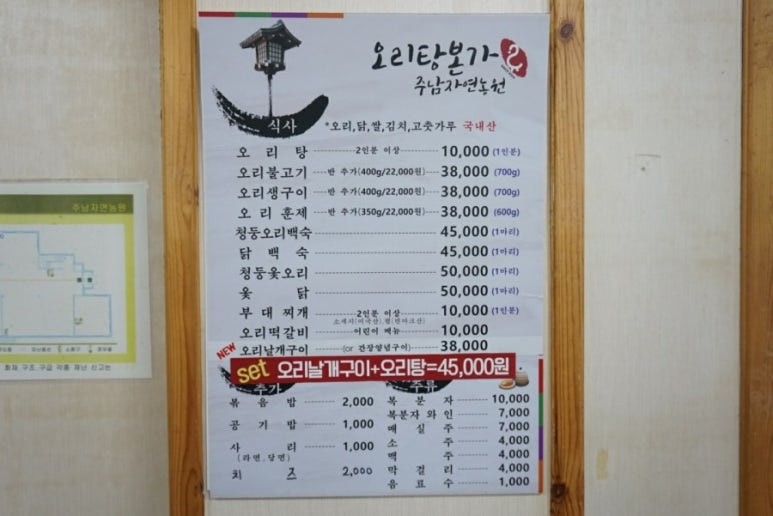 오리탕본가
주남자연농원
식사
*오리,닭,쌀,김치,고춧가루 국내산
오리탕 2인분 이상 10,000 (1인분)
오리불고기 반 추가(400g/22,000원) 38,000 (700g)
오리생구이 반 추가(400g/22,000원) 38,000 (700g)
오리훈제 반 추가(350g/22,000원) 38,000 (600g)
청둥오리백숙 45,000 (1마리)
닭백숙 45,000 (1마리)
청둥옻오리 50,000 (1마리)
옻닭 50,000 (1마리)
부대찌개 2인분 이상 10,000 (1인분)
소세지(미국산), 햄(덴마크산)
오리떡갈비 어린이 메뉴 10,000
NEW 오리날개구이 (or 간장양념구이) 38,000
set 오리날개구이+오리탕=45,000원
추가
볶음밥 2,000
공기밥 1,000
사리 1,000
(라면,당면)
치즈 2,000
주류
복분자 10,000
복분자와인 7,000
매실주 7,000
소주 4,000
맥주 4,000
막걸리 4,000
음료수 1,000
주남자연농원